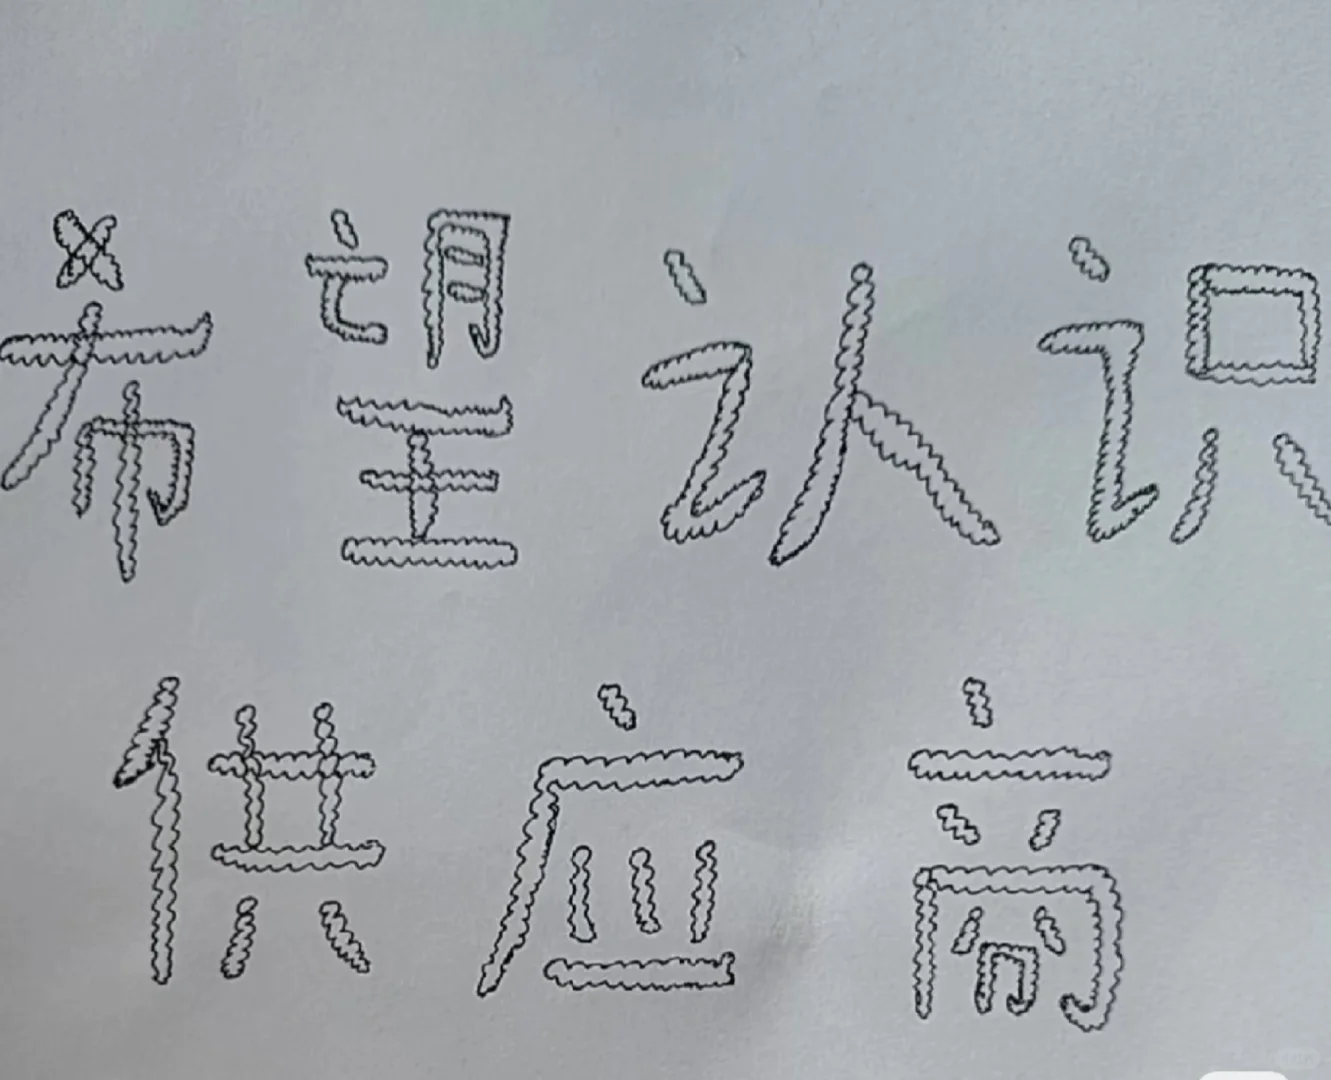 希望认识
供应商